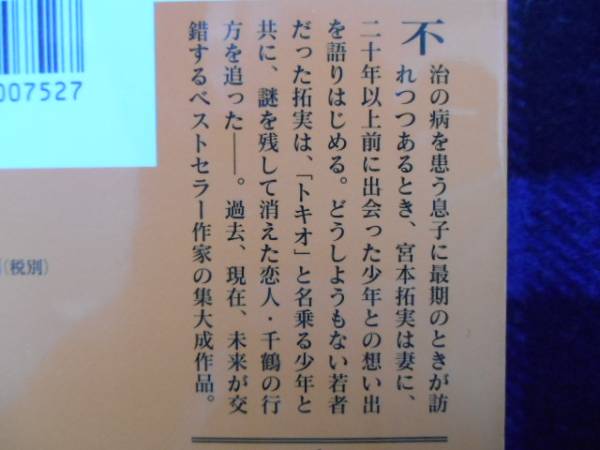 不治の病を患う息子に最期のときが訪
れつつあるとき、宮本拓実は妻に、
二十年以上前に出会った少年との想い出
を語りはじめる。どうしようもない若者
だった拓実は、「トキオ」と名乗る少年と
共に、謎を残して消えた恋人・千鶴の行
方を追った――。過去、現在、未来が交
錯するベストセラー作家の集大成作品。
007527
(税別)